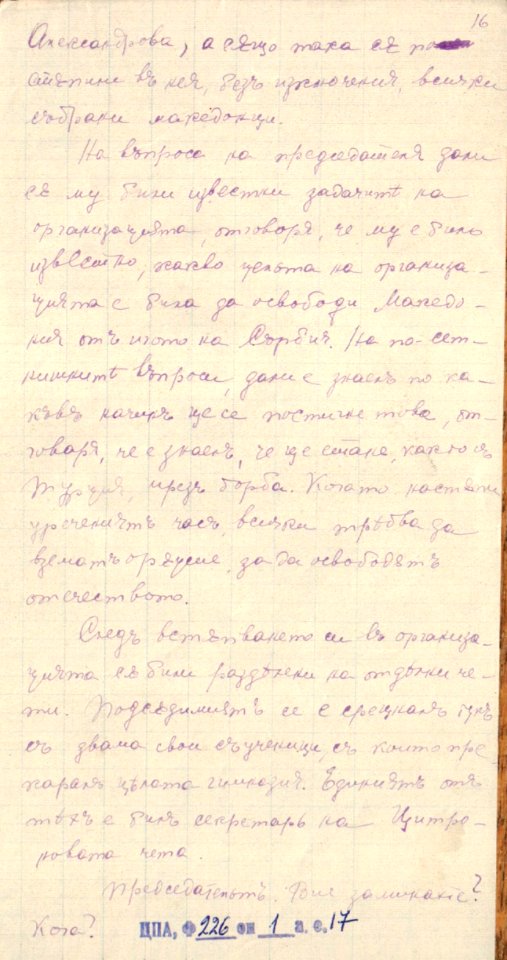 16
Александрова, а сѫщо така сѫ по
стѫпили въ нея, безъ изключения, всички
събрани македонци.
На въпроса на председателя дали
сѫ му били известни задачитѣ на
организацията, отговаря, че му е било
известно, какво цельта на организа-
цията е била да освободи Македо-
ния отъ игото на Сърбия. На по-сет-
нишнитѣ въпроси, дали е знаелъ по ка-
къвъ начинъ ще се постигне това, от-
говаря, че е знаелъ, че ще стане, както съ
Турция, презъ борба. Когато настѫпи
уречениятъ часъ, всички трѣбва да
взематъ орѫжие, за да освободятъ
отечеството.
Следъ встѫпването си въ организа-
цията сѫ били раздѣлени на отдѣлни че-
ти. Подсѫдимиятъ се е срещналъ тукъ
съ двама свои съученици, съ които пре
каралъ цѣлата гимназия. Единиятъ отъ
тѣхъ е билъ секретарь на
новата чета.
Председательтъ. Вие заминахте?
Кога?
ЦПА, Ф 226 оп 1 а. е. 17